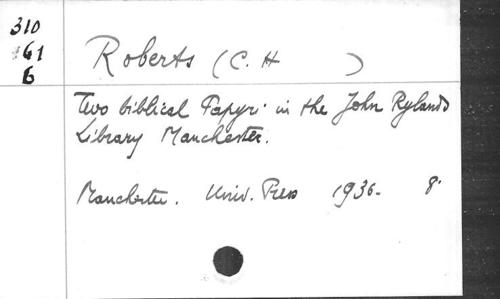 310
61
6
Roberts (C. H )
Two biblical Papyri in the John Rylands
Library Manchester.
Manchester. Univ. Press 1936. 8°